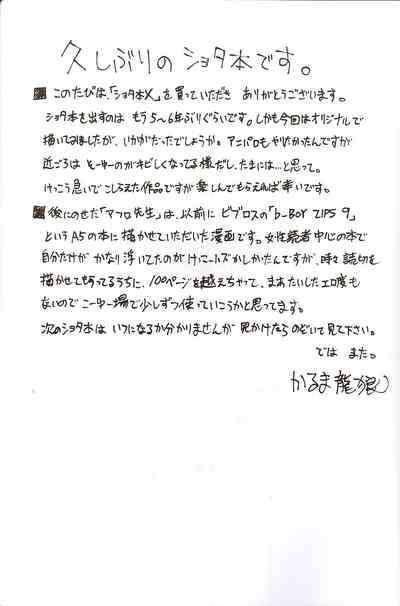 久しぶりのショタ本です。
このたびは、「ショタ本X」を買っていただき ありがとうございます。
ショタ本を出すのは もう5〜6年ぶりぐらいです。しかも今回はオリジナルで
描いてみましたが、いかがだったでしょうか。アニパロもやりたかったんですが
近ごろは そーゆーのがキビしくなってる様だし、たまには…と思って。
けっこう急いでこしらえた作品ですが 楽しんでもらえれば幸いです。
後にのせた「マフロ先生」は、以前に ビブロスの「b-BOY ZIPS 9」
というA5の本に描かせていただいた漫画です。女性読者中心の本で
自分だけが かなり浮いてたのが けっこーハズかしかたんですが、時々読切を
描かせてもらってるうちに、100ページを越えちゃって、まあたいしたエロ度も
ないので こーゆー場で少しずつ使っていこうかと思ってます。
次のショタ本は いつになるか分かりませんが 見かけたら のぞいて見て下さい。
では また。
かるま龍狼